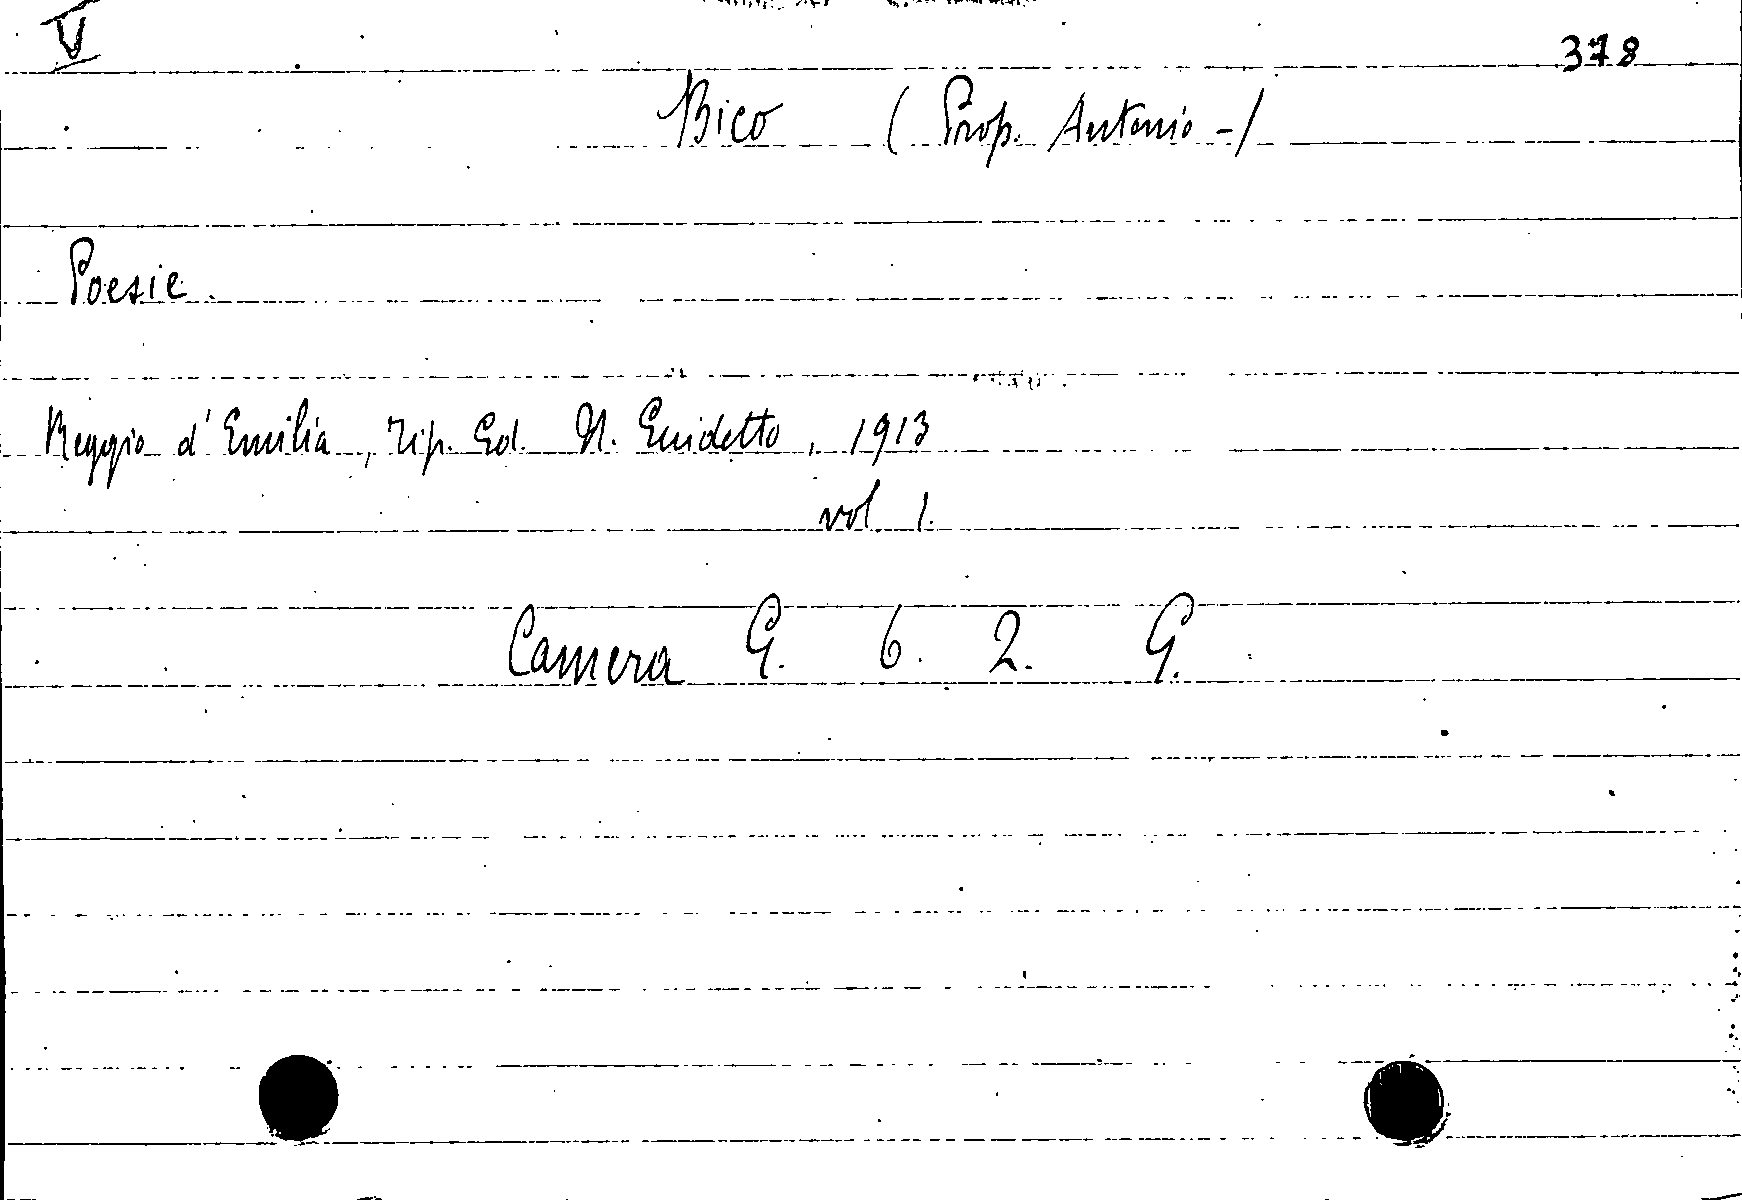 V
378
Bico ( Prof. Antonio - )
Poesie.
Reggio d'Emilia, Tip. Ed. N. Guidetto, 1913
vol 1.
Camera G. 6. 2. G.